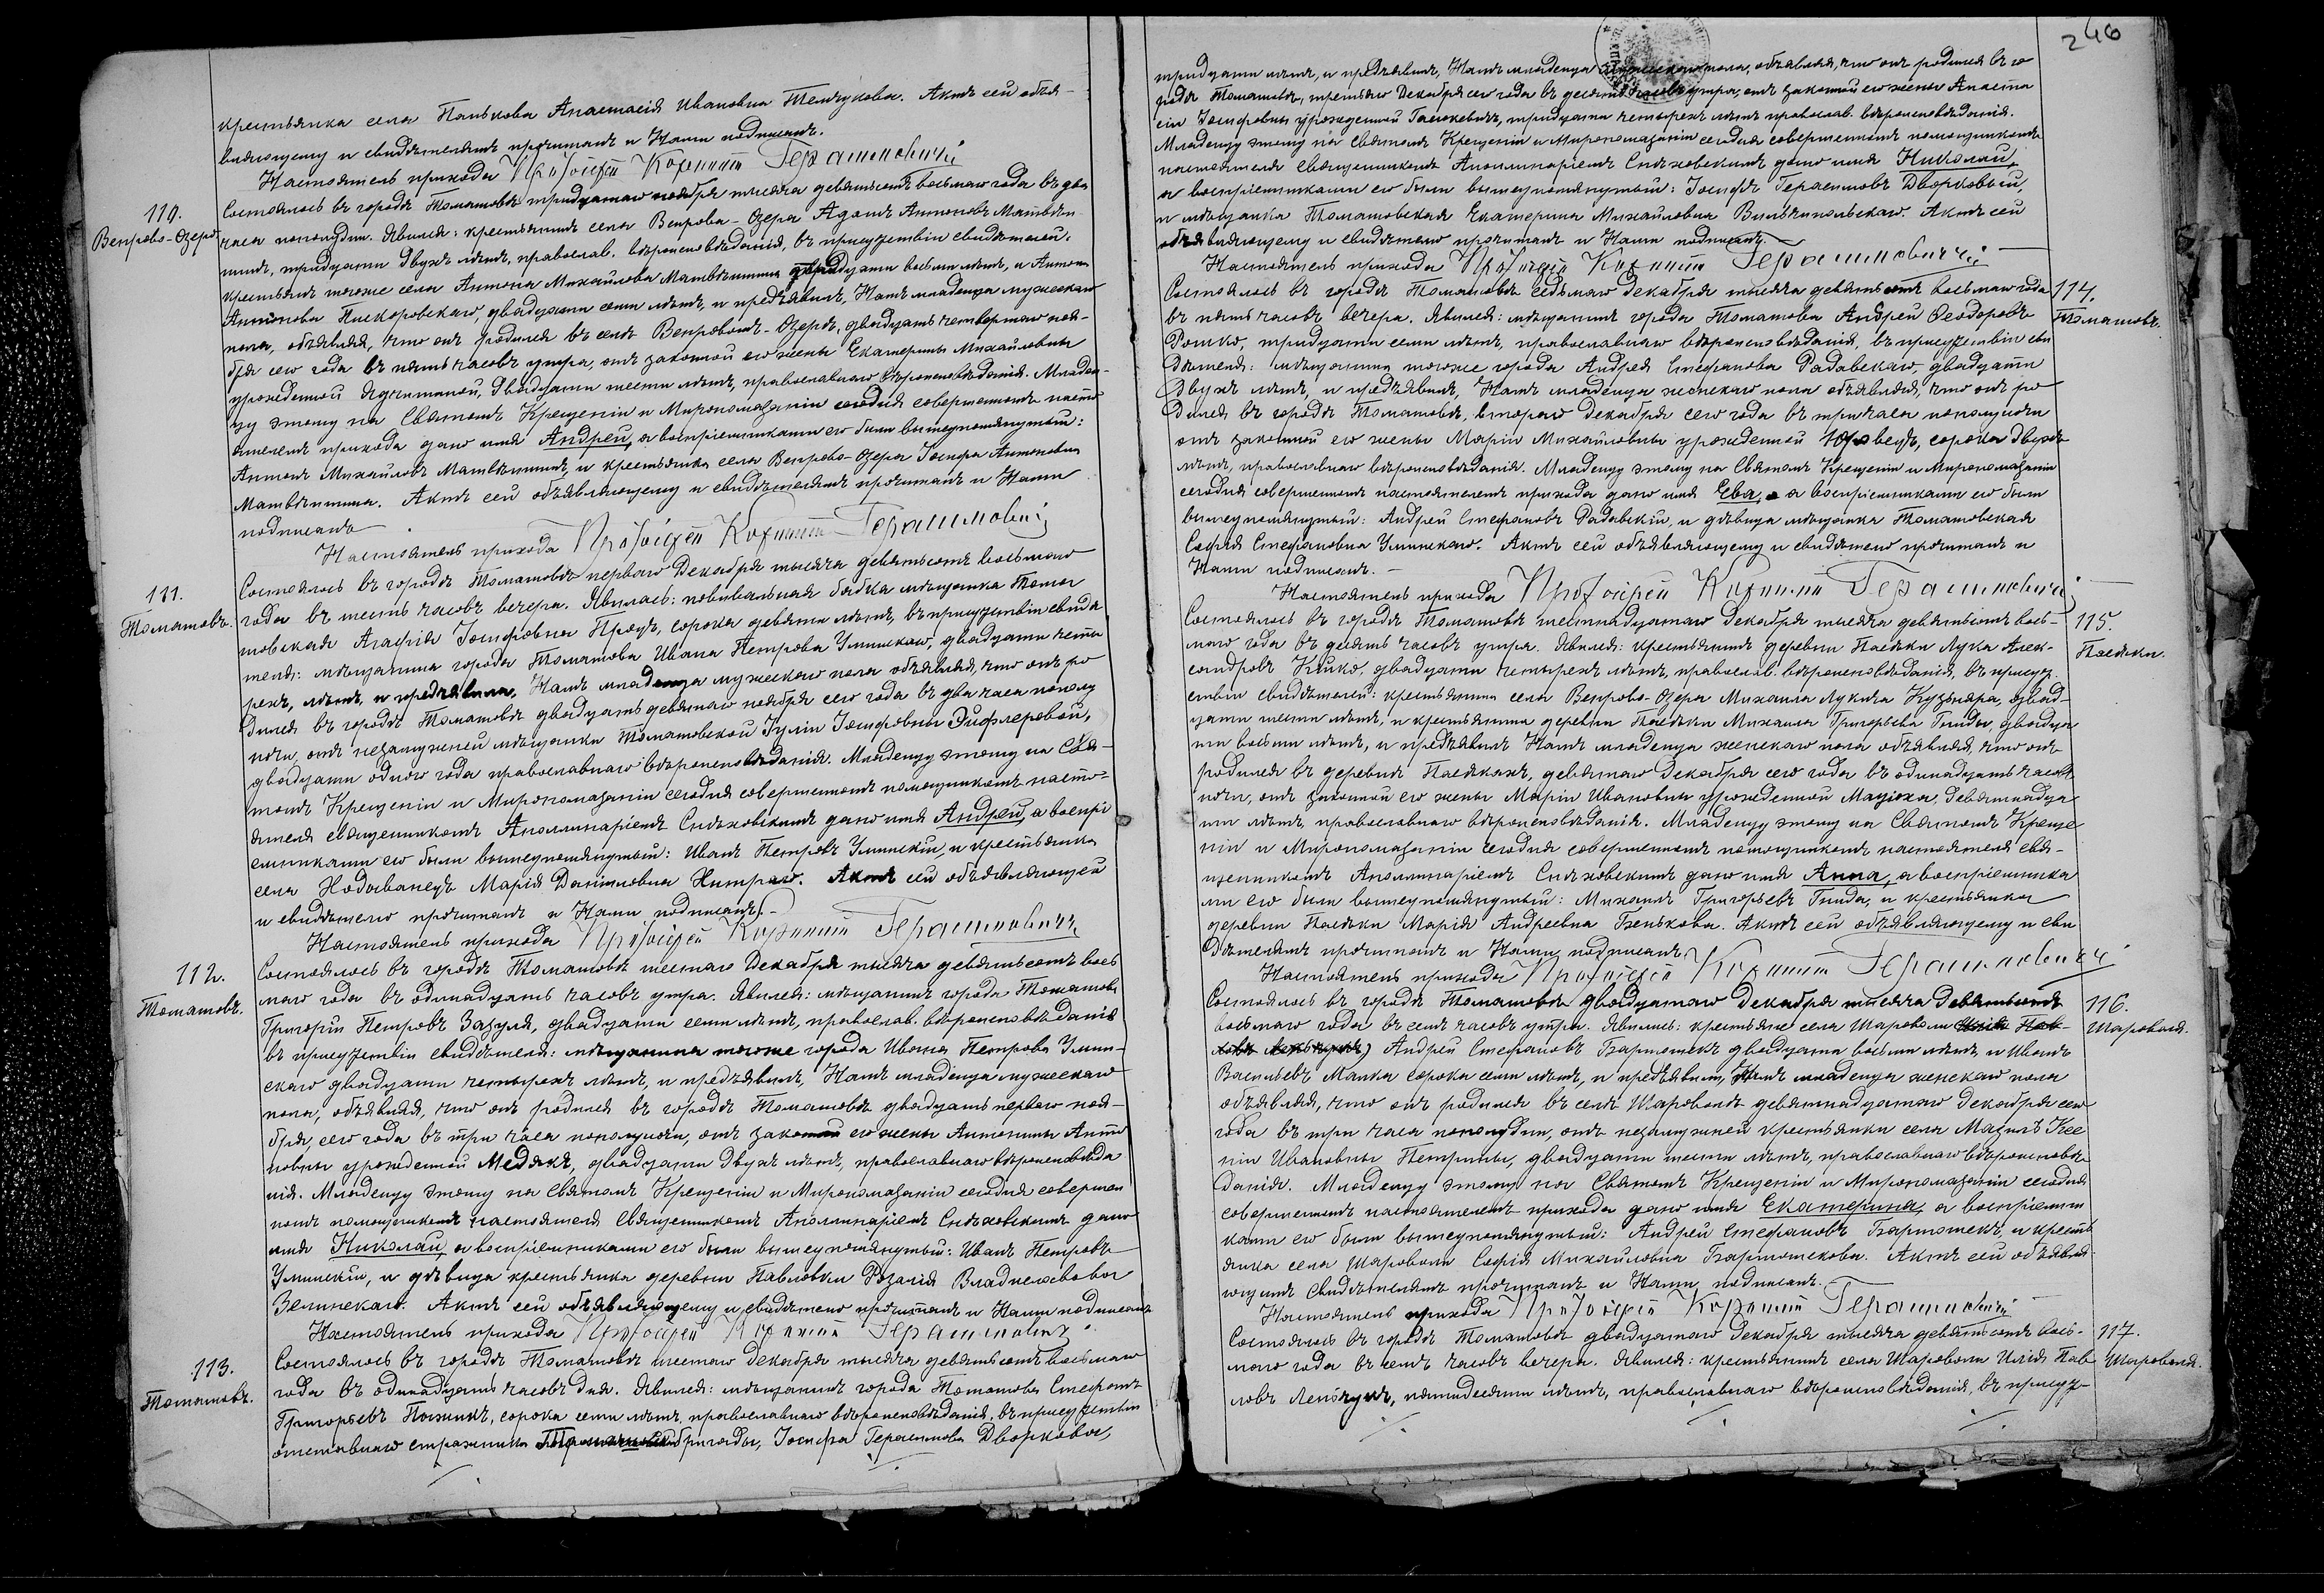 крестьянка села Панькова Анастасія Ивановна Тенчукова. Актъ сей объя-
вляющему и свидѣтелямъ прочитанъ и Нами подписанъ.
Настоятель прихода Протоіерей Корнилій Герасимовичъ
110.
Вепрово-Озеро
Состоялось въ городѣ Томашовѣ тридцатаго ноября тысяча девятьсотъ восьмаго года въ два
часа пополудни. Явился: крестьянинъ села Вепрова-Озера Адамъ Антоновъ Матвѣи-
шинъ, тридцати двухъ лѣтъ, православ. вѣроисповѣданія, въ присутствіи свидѣтелей:
крестьянъ тогоже села Антона Михайлова Матвѣишина двадцати восьми лѣтъ, и Антона
Антонова Пискоровскаго, двадцати семи лѣтъ, и предъявилъ, Намъ младенца мужескаго
пола, объявляя, что онъ родился въ селѣ Вепровомъ-Озерѣ, двадцать четвертаго ноя-
бря сего года въ пять часовъ утра, отъ законной его жены Екатерины Михайловны
урожденной Ядчишиной, двадцати шести лѣтъ, православнаго вѣроисповѣданія. Младен-
цу этому на Святомъ Крещеніи и Миропомазаніи сегодня совершенномъ насто-
ятелемъ прихода дано имя Андрей, а воспріемниками его были вышеупомянутый:
Антонъ Михайловъ Матвѣишинъ, и крестьянка села Вепрово-Озера Іосифа Антоновна
Матвѣишина. Актъ сей объявляющему и свидѣтелямъ прочитанъ и Нами
подписанъ
Настоятель прихода Протоіерей Корнилій Герасимовичъ
111.
Томашовъ.
Состоялось въ городѣ Томашовѣ перваго Декабря тысяча девятьсотъ восьмаго
года въ шесть часовъ вечера. Явилась: повивальная бабка мѣщанка Тома-
шовская Агафія Іосифовна Процъ, сорока девяти лѣтъ, въ присутствіи свидѣ
теля: мѣщанина города Томашова Ивана Петрова Улинскаго, двадцати четы
рехъ, лѣтъ, и предъявила, Намъ младенца мужескаго пола объявляя, что онъ ро
дился въ городѣ Томашовѣ двадцать девятаго ноября сего года въ два часа пополу
ночи, отъ незамужней мѣщанки Томашовской Іуліи Іосифовны Эйфлеровой,
двадцати одного года православнаго вѣроисповѣданія. Младенцу этому на Свя-
томъ Крещеніи и Миропомазаніи сегодня совершенномъ помощникомъ насто-
ятеля священникомъ Аполлинаріемъ Снѣховскимъ дано имя Андрей, а воспрі
емниками его были вышеупомянутый: Иванъ Петровъ Улинскій, и крестьянка
села Подываnецъ Марія Даниловна Нитрао. Актъ сей объявляющей
и свидѣтелю прочитанъ и Нами подписанъ.-
Настоятель прихода Протоіерей Корнилій Герасимовичъ
112.
Томашовъ.
Состоялось въ городѣ Томашовѣ шестаго Декабря тысяча девятьсотъ вось
маго года въ одинадцать часовъ утра. Явился: мѣщанинъ города Томашова
Григорій Петровъ Зазуля, двадцати семи лѣтъ, православ. вѣроисповѣданія
въ присутствіи свидѣтеля: мѣщанина тогоже города Ивана Петрова Улин-
скаго двадцати четырехъ лѣтъ, и предъявилъ, Намъ младенца мужескаго
пола, объявляя, что онъ родился въ городѣ Томашовѣ двадцать перваго ноя-
бря, сего года въ три часа пополуночи, отъ законной его жены Антонины Анто
новны урожденной Медякъ, двадцати двухъ лѣтъ, православнаго вѣроисповѣда
нія. Младенцу этому на Святомъ Крещеніи и Миропомазаніи сегодня совершен
номъ помощникомъ настоятеля Священникомъ Аполлинаріемъ Снѣховскимъ дано
имя Николай, а воспріемниками его были вышеупомянутый: Иванъ Петровъ
Улинскій, и дѣвица крестьянка деревни Павловки Розалія Владиславовна
Зелинскаго. Актъ сей объявляющему и свидѣтелю прочитанъ и Нами подписанъ
Настоятель прихода Протоіерей Корнилій Герасимовичъ
113.
Томашовъ.
Состоялось въ городѣ Томашовѣ шестаго декабря тысяча девятьсотъ восьмаго
года въ одинадцать часовъ дня. Явился: мѣщанинъ города Томашова Стефанъ
Григорьевъ Пыжикъ, сорока семи лѣтъ, православнаго вѣроисповѣданія, въ присутствіи
отставнаго стражника бригады, Іосифа Герасимова Дворковы,
246
тридцати лѣтъ, и предъявилъ, Намъ младенца мужескаго пола, объявляя, что онъ родился въ го
родѣ Томашовѣ, третьяго Декабря сего года въ десять часовъ утра, отъ законной его жены Анаста
сіи Іосифовны урожденной Гасюкевичъ, тридцати четырехъ лѣтъ православ. вѣроисповѣданія.
Младенцу этому на Святомъ Крещеніи и Миропомазаніи сегодня совершенномъ помощникомъ
настоятеля Священникомъ Аполлинаріемъ Снѣховскимъ дано имя Николай,
а воспріемниками его были вышеупомянутый: Іосифъ Герасимовъ Дворковый,
и мѣщанка Томашовская Екатерина Михайловна Вильчпольскаго. Актъ сей
объявляющему и свидѣтелю прочитанъ и Нами подписанъ.
Настоятель прихода Протоіерей Корнилій Герасимовичъ
114.
Томашовъ.
Состоялось въ городѣ Томашовѣ седьмаго Декабря тысяча девятьсотъ восьмаго года
въ пять часовъ вечера. Явился: мѣщанинъ города Томашова Андрей Ѳеодоровъ
Ромко, тридцати семи лѣтъ, православнаго вѣроисповѣданія, въ присутствіи сви
дѣтеля: мѣщанина тогоже города Андрея Стефанова Радавскаго, двадцати
двухъ лѣтъ, и предъявилъ, Намъ младенца женскаго пола объявляя, что онъ ро
дился въ городѣ Томашовѣ, втораго декабря сего года въ три часа пополуночи
отъ законной его жены Маріи Михайловны урожденной сорока двухъ
лѣтъ, православнаго вѣроисповѣданія. Младенцу этому на Святомъ Крещеніи и Миропомазаніи
сегодня совершенномъ настоятелемъ прихода дано имя Ева, а воспріемниками его были
вышеупомянутый: Андрей Стефановъ Радавскій, и дѣвица мѣщанка Томашовская
Софія Стефановна Улинскаго. Актъ сей объявляющему и свидѣтелю прочитанъ и
Нами подписанъ. -
Настоятель прихода Протоіерей Корнилій Герасимовичъ
115.
Пасѣки.
Состоялось въ городѣ Томашовѣ шестнадцатаго Декабря тысяча девятьсотъ вось-
маго года въ десять часовъ утра. Явился: крестьянинъ деревни Пасѣки Лука Алек-
сандровъ Кицко, двадцати четырехъ лѣтъ, православ. вѣроисповѣданія, въ присут
ствіи свидѣтелей: крестьянина села Вепрово-Озера Михаила Лукича Кузьняра, двад-
цати шести лѣтъ, и крестьянина деревни Пасѣки Михаила Григорьева Гниды, двадца
ти восьми лѣтъ, и предъявилъ Намъ младенца женскаго пола объявляя, что онъ
родился въ деревнѣ Пасѣкахъ, девятаго Декабря сего года въ одинадцать часовъ
ночи, отъ законной его жены Маріи Ивановны урожденной Мацюха, девятнадца
ти лѣтъ, православнаго вѣроисповѣданія. Младенцу этому на Святомъ Креще
ніи и Миропомазаніи сегодня совершенномъ помощникомъ настоятеля свя-
щенникомъ Аполлинаріемъ Снѣховскимъ дано имя Анна, а воспріемника
ми его были вышеупомянутый: Михаилъ Григорьевъ Гнида, и крестьянка
деревни Пасѣки Марія Андреевна Бенькова. Актъ сей объявляющему и сви
дѣтелямъ прочитанъ и Нами подписанъ
Настоятель прихода Протоіерей Корнилій Герасимовичъ
116.
Шароволя.
Состоялось въ городѣ Томашовѣ двадцатаго Декабря тысяча девятьсотъ
восьмаго года въ семь часовъ утра. Явились: крестьяне села Шароволи Илія Пав-
ловъ Ленчукъ) Андрей Стефановъ Бартошекъ двадцати восьми лѣтъ, и Иванъ
Васильевъ Малка сорока семи лѣтъ, и предъявили, Намъ младенца женскаго пола
объявляя, что онъ родился въ селѣ Шароволѣ девятнадцатаго Декабря сего
года въ три часа пополудни, отъ незамужней крестьянки села Мазилъ Ксе
ніи Ивановны Петрины, двадцати шести лѣтъ, православнаго вѣроисповѣ
данія. Младенцу этому на Святомъ Крещеніи и Миропомазаніи сегодня
совершенномъ настоятелемъ прихода дано имя Екатерина, а воспріемни
ками его были вышеупомянутый: Андрей Стефановъ Бартошекъ, и кресть
янка села Шароволи Софія Михайловна Бартошекова. Актъ сей объявля-
ющимъ свидѣтелямъ прочитанъ и Нами подписанъ.
Настоятель прихода Протоіерей Корнилій Герасимовичъ
117.
Шароволя.
Состоялось въ городѣ Томашовѣ двадцатаго Декабря тысяча девятьсотъ вось-
маго года въ семь часовъ вечера. Явился: крестьянинъ села Шароволи Илія Пав
ловъ Ленчукъ, пятидесяти лѣтъ, православнаго вѣроисповѣданія, въ присут-